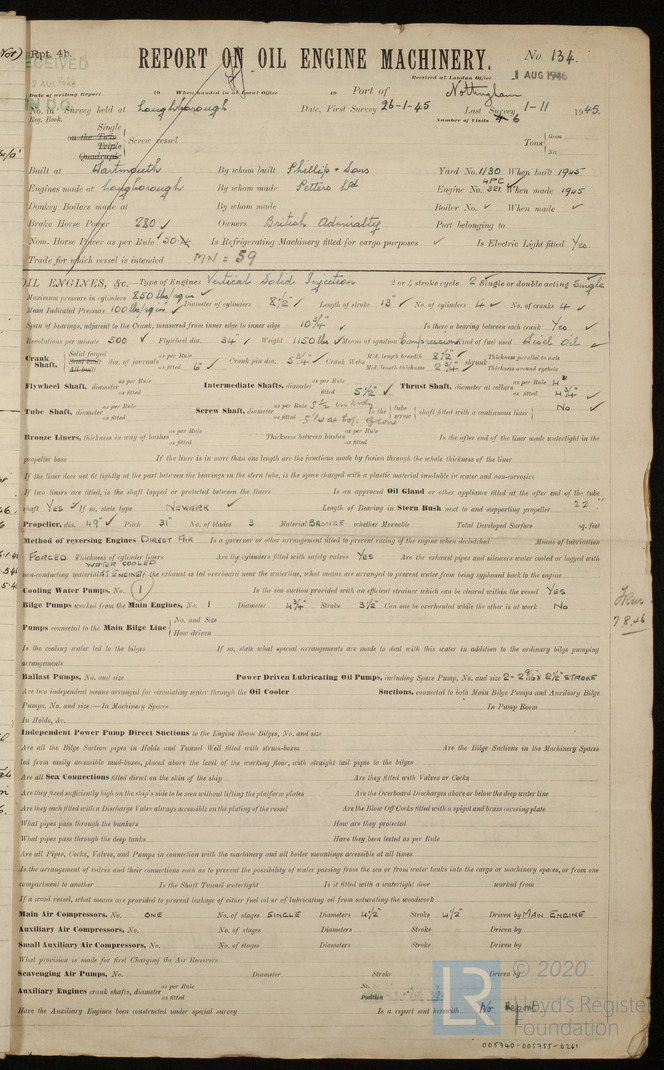 Rpt. 4b.
RECEIVED
2 AUG 1946
IN D.O.
REPORT ON OIL ENGINE MACHINERY.
No 134.
Received at London Office
1 AUG 1946
Date of writing Report 19 When handed in at Local Office 19 Port of Nottingham
No. in Survey held at Loughborough Date, First Survey 26-1-45 Last Survey 1-11 1945.
Reg. Book. Number of Visits 6
Single
on the Twin
Triple
Quadruple
Screw vessel
Tons Gross
Net
Built at Dartmouth By whom built Phillip & Sons Yard No. 1130 When built 1945
Engines made at Loughborough By whom made Petters Ltd Engine No. 4PC 321 When made 1945
Donkey Boilers made at By whom made Boiler No. ✓ When made ✓
Brake Horse Power 280 ✓ Owners British Admiralty Port belonging to
Nom. Horse Power as per Rule Is Refrigerating Machinery fitted for cargo purposes ✓ Is Electric Light fitted Yes.
Trade for which vessel is intended MN = 59
OIL ENGINES, &c.—Type of Engines Vertical Solid Injection 2 or 4 stroke cycle 2 Single or double acting Single
Maximum pressure in cylinders 850 lbs/sq in ✓ Diameter of cylinders 8½" ✓ Length of stroke 13" ✓ No. of cylinders 4 ✓ No. of cranks 4 ✓
Mean Indicated Pressure 100 lbs/sq in ✓
Span of bearings, adjacent to the Crank, measured from inner edge to inner edge 10¾" ✓ Is there a bearing between each crank Yes ✓
Revolutions per minute 500 ✓ Flywheel dia. 34 ✓ Weight 1150 lbs ✓ Means of ignition Compression Kind of fuel used Diesel Oil ✓
Crank Shaft, Solid forged Semi built All built dia. of journals as per Rule as fitted 6" ✓ Crank pin dia. 5¾" ✓ Crank Webs Mid. length breadth 8½" ✓ Mid. length thickness 2¾" shrunk Thickness parallel to axis Thickness around eyehole
Flywheel Shaft, diameter as per Rule as fitted Intermediate Shafts, diameter as per Rule as fitted 5½" ✓ Thrust Shaft, diameter at collars as per Rule 4" as fitted 4¾" ✓
Tube Shaft, diameter as per Rule as fitted Screw Shaft, diameter as per Rule as fitted Is the tube screw shaft fitted with a continuous liner No ✓
Bronze Liners, thickness in way of bushes as per Rule as fitted Thickness between bushes as per Rule as fitted Is the after end of the liner made watertight in the
propeller boss If the liner is in more than one length are the junctions made by fusion through the whole thickness of the liner
If the liner does not fit tightly at the part between the bearings in the stern tube, is the space charged with a plastic material insoluble in water and non-corrosive
If two liners are fitted, is the shaft lapped or protected between the liners Is an approved Oil Gland or other appliance fitted at the after end of the tube
shaft YES ✓ If so, state type NEWARK ✓ Length of Bearing in Stern Bush next to and supporting propeller 22"
Propeller, dia. 49" ✓ Pitch 31" No. of blades 3 Material BRONZE whether Moveable Total Developed Surface sq. feet
Method of reversing Engines DIRECT AIR Is a governor or other arrangement fitted to prevent racing of the engine when declutched Means of lubrication
FORCED Thickness of cylinder liners Are the cylinders fitted with safety valves YES Are the exhaust pipes and silencers water cooled or lagged with
WATER COOLED
non-conducting material AS ENGINE If the exhaust is led overboard near the waterline, what means are arranged to prevent water from being syphoned back to the engine
Cooling Water Pumps, No. 1 Is the sea suction provided with an efficient strainer which can be cleared within the vessel YES
Bilge Pumps worked from the Main Engines, No. 1 Diameter 4¾" Stroke 3½" Can one be overhauled while the other is at work NO
Pumps connected to the Main Bilge Line No. and Size
How driven
Is the cooling water led to the bilges If so, state what special arrangements are made to deal with this water in addition to the ordinary bilge pumping
arrangements
Ballast Pumps, No. and size Power Driven Lubricating Oil Pumps, including Spare Pump, No. and size 2- 2 9/16 X 2½" STROKE
Are two independent means arranged for circulating water through the Oil Cooler Suctions, connected to both Main Bilge Pumps and Auxiliary Bilge
Pumps, No. and size:—In Machinery Spaces In Pump Room
In Holds, &c.
Independent Power Pump Direct Suctions to the Engine Room Bilges, No. and size
Are all the Bilge Suction pipes in Holds and Tunnel Well fitted with strum-boxes Are the Bilge Suctions in the Machinery Spaces
led from easily accessible mud-boxes, placed above the level of the working floor, with straight tail pipes to the bilges
Are all Sea Connections fitted direct on the skin of the ship Are they fitted with Valves or Cocks
Are they fixed sufficiently high on the ship's side to be seen without lifting the platform plates Are the Overboard Discharges above or below the deep water line
Are they each fitted with a Discharge Valve always accessible on the plating of the vessel Are the Blow Off Cocks fitted with a spigot and brass covering plate
What pipes pass through the bunkers How are they protected
What pipes pass through the deep tanks Have they been tested as per Rule
Are all Pipes, Cocks, Valves, and Pumps in connection with the machinery and all boiler mountings accessible at all times
Is the arrangement of valves and their connections such as to prevent the possibility of water passing from the sea or from water tanks into the cargo or machinery spaces, or from one
compartment to another Is the Shaft Tunnel watertight Is it fitted with a watertight door worked from
If a wood vessel, what means are provided to prevent leakage of either fuel oil or of lubricating oil from saturating the woodwork
Main Air Compressors, No. ONE No. of stages SINGLE Diameters 4½" Stroke 4½" Driven by MAIN ENGINE
Auxiliary Air Compressors, No. No. of stages Diameters Stroke Driven by
Small Auxiliary Air Compressors, No. No. of stages Diameters Stroke Driven by
What provision is made for first Charging the Air Receivers
Scavenging Air Pumps, No. Diameter Stroke Driven by
Auxiliary Engines crank shafts, diameter as per Rule as fitted No. Position
Have the Auxiliary Engines been constructed under special survey Is a report sent herewith No Report
7.8.46
LR © 2020
Lloyd's Register
Foundation
005740-005755-0261